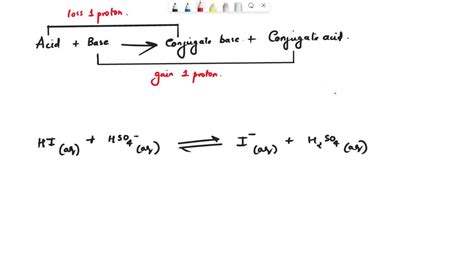 loss 1 proton.
Acid + Base → Conjugate base + Conjugate acid.
gain 1 proton.
HI(aq) + HSO₄⁻(aq) ⇌ I⁻(aq) + H₂SO₄(aq)